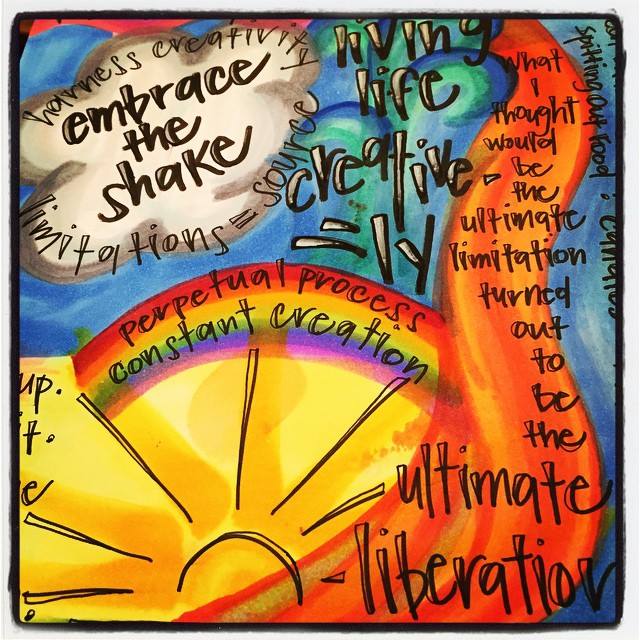 harness creativity
embrace
the
shake
limitations = source
living
life
creative-
ly
perpetual process
constant creation
What
I
thought
would
be
the
ultimate
limitation
turned
out
to
be
the
ultimate
-liberation
up.
it.
Spitting out food